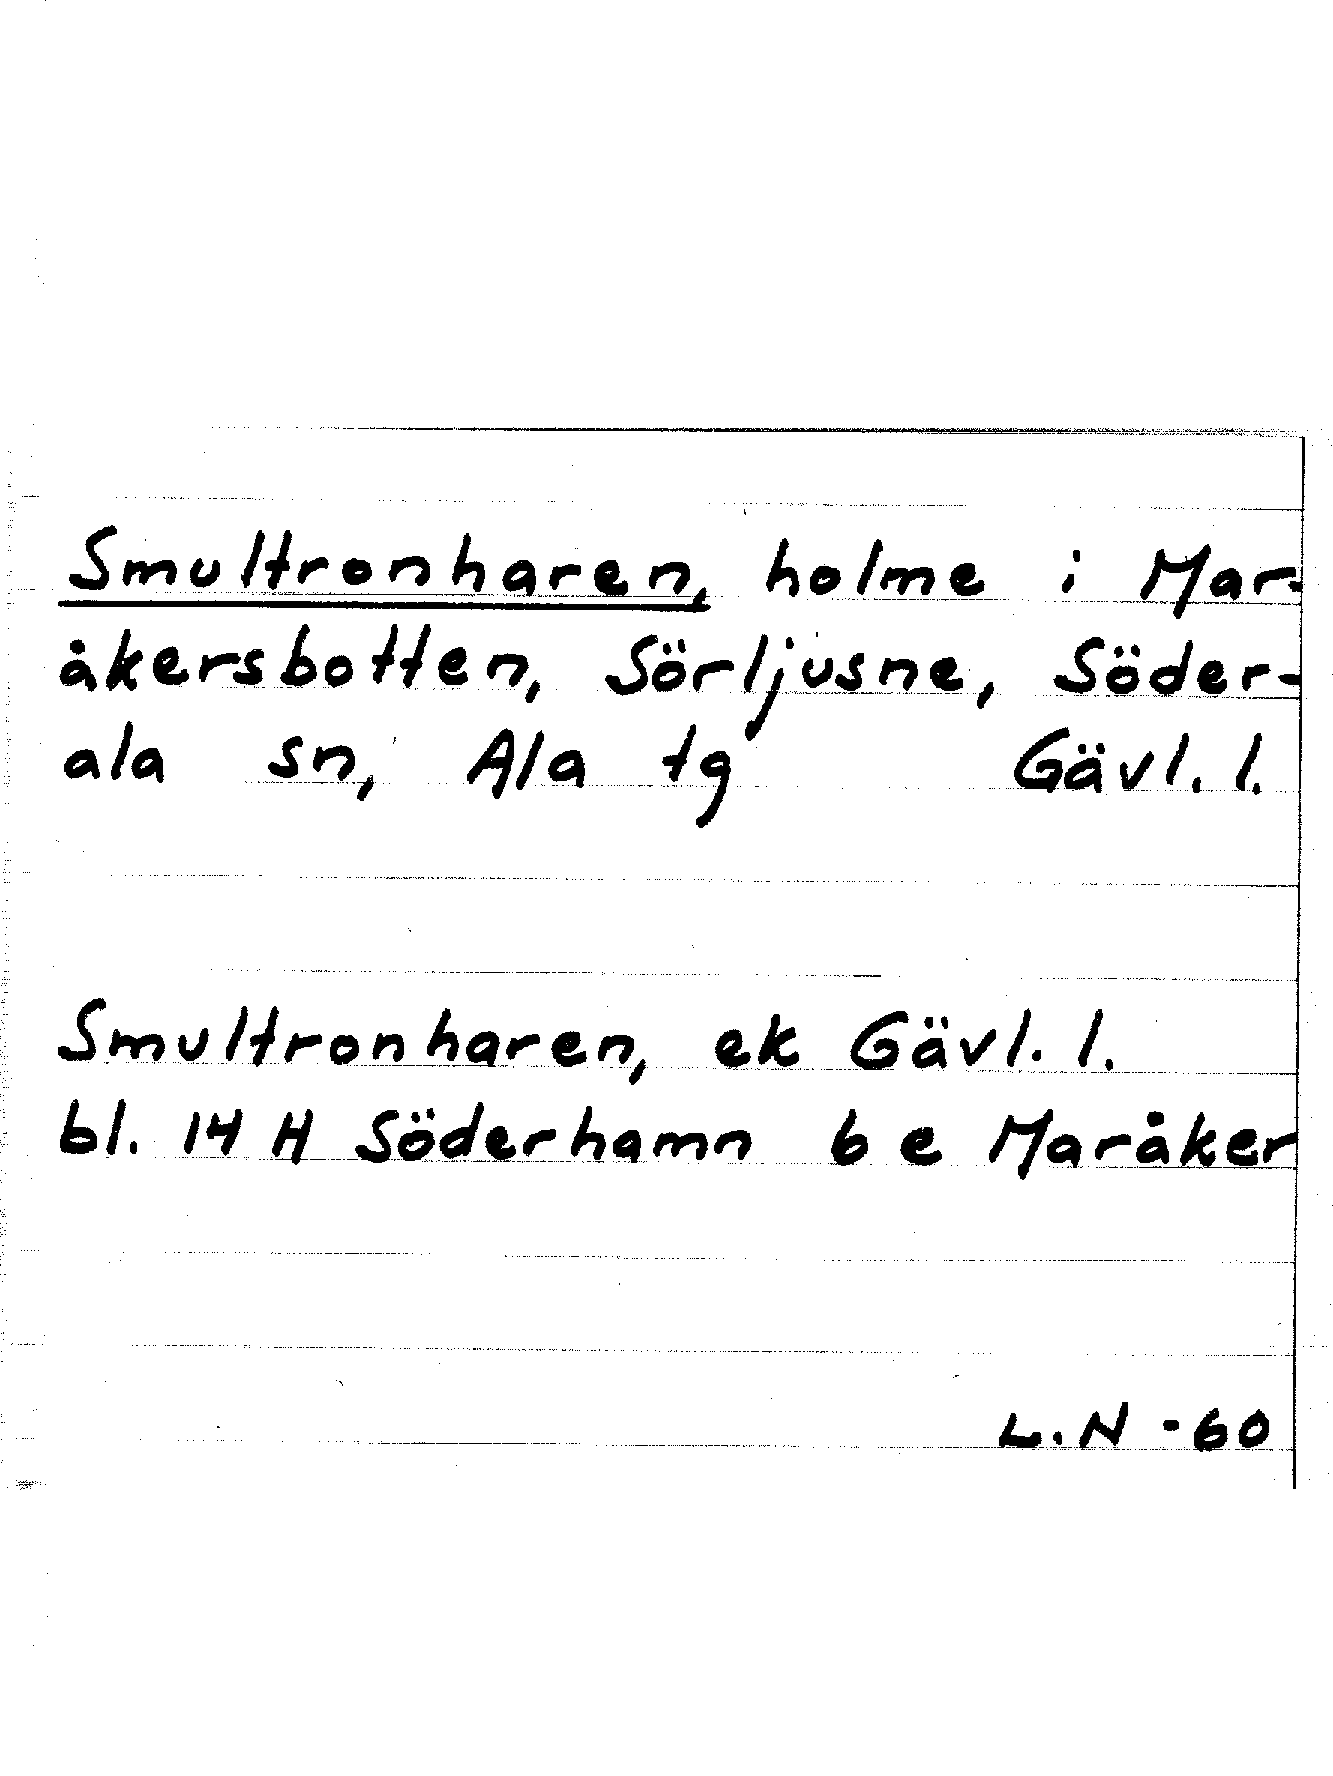 Smultronharen, holme i Mar-
åkersbotten, Sörljusne, Söder-
ala sn, Ala tg Gävl. l.
Smultronharen, ek Gävl. l.
bl. 14 H Söderhamn 6 e Maråker
L.N -60